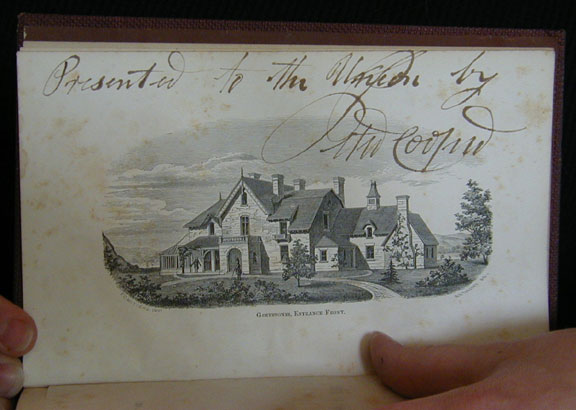 Presented to the Union by
Peter Cooper
Entrance Front.